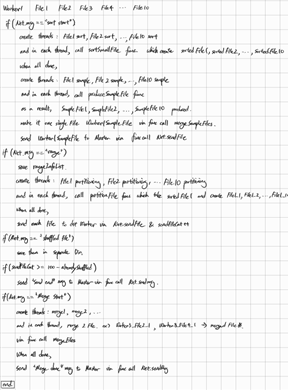 Worker1 File1 File2 File3 File4 ... File10
if (Net.msg == "sort start")
create threads : File1 sort, File2 sort, ..., File10 sort
and in each thread, call sortSmallFile func which create sorted File1, sorted File2, ..., sorted File10
when all done,
create threads : File1 sample, File2 sample, ..., File10 sample
and in each thread, call produceSampleFile func
as a result, SampleFile1, SampleFile2, ..., SampleFile10 produced.
make it one single File Worker1SampleFile via func call mergeSampleFiles.
send Worker1SampleFile to Master via func call Net.sendFile
if (Net.msg == "range")
save rangeInfoList
create threads : File1 partitioning, File2 partitioning, ... File10 partitioning
and in each thread, call partitionFile func which the sorted File1 and create File1_1, File1_2, ...,
when all done,
send each File to the Worker via Net.sendFile & sendFileCnt++
if (Net.msg == "shuffled file")
save them in separate Dir.
if (sendFileCnt >= 100 - alreadyShuffled)
send "send end" msg to Master via func call Net.sendmsg.
if (Net.msg == "Merge Start")
create threads : merge1, merge2, ...
and in each thread, merge 2 File. ex) → merged File #1
via func call mergeFiles
when all done,
send "Merge done" msg to Master via func call Net.sendMsg
end